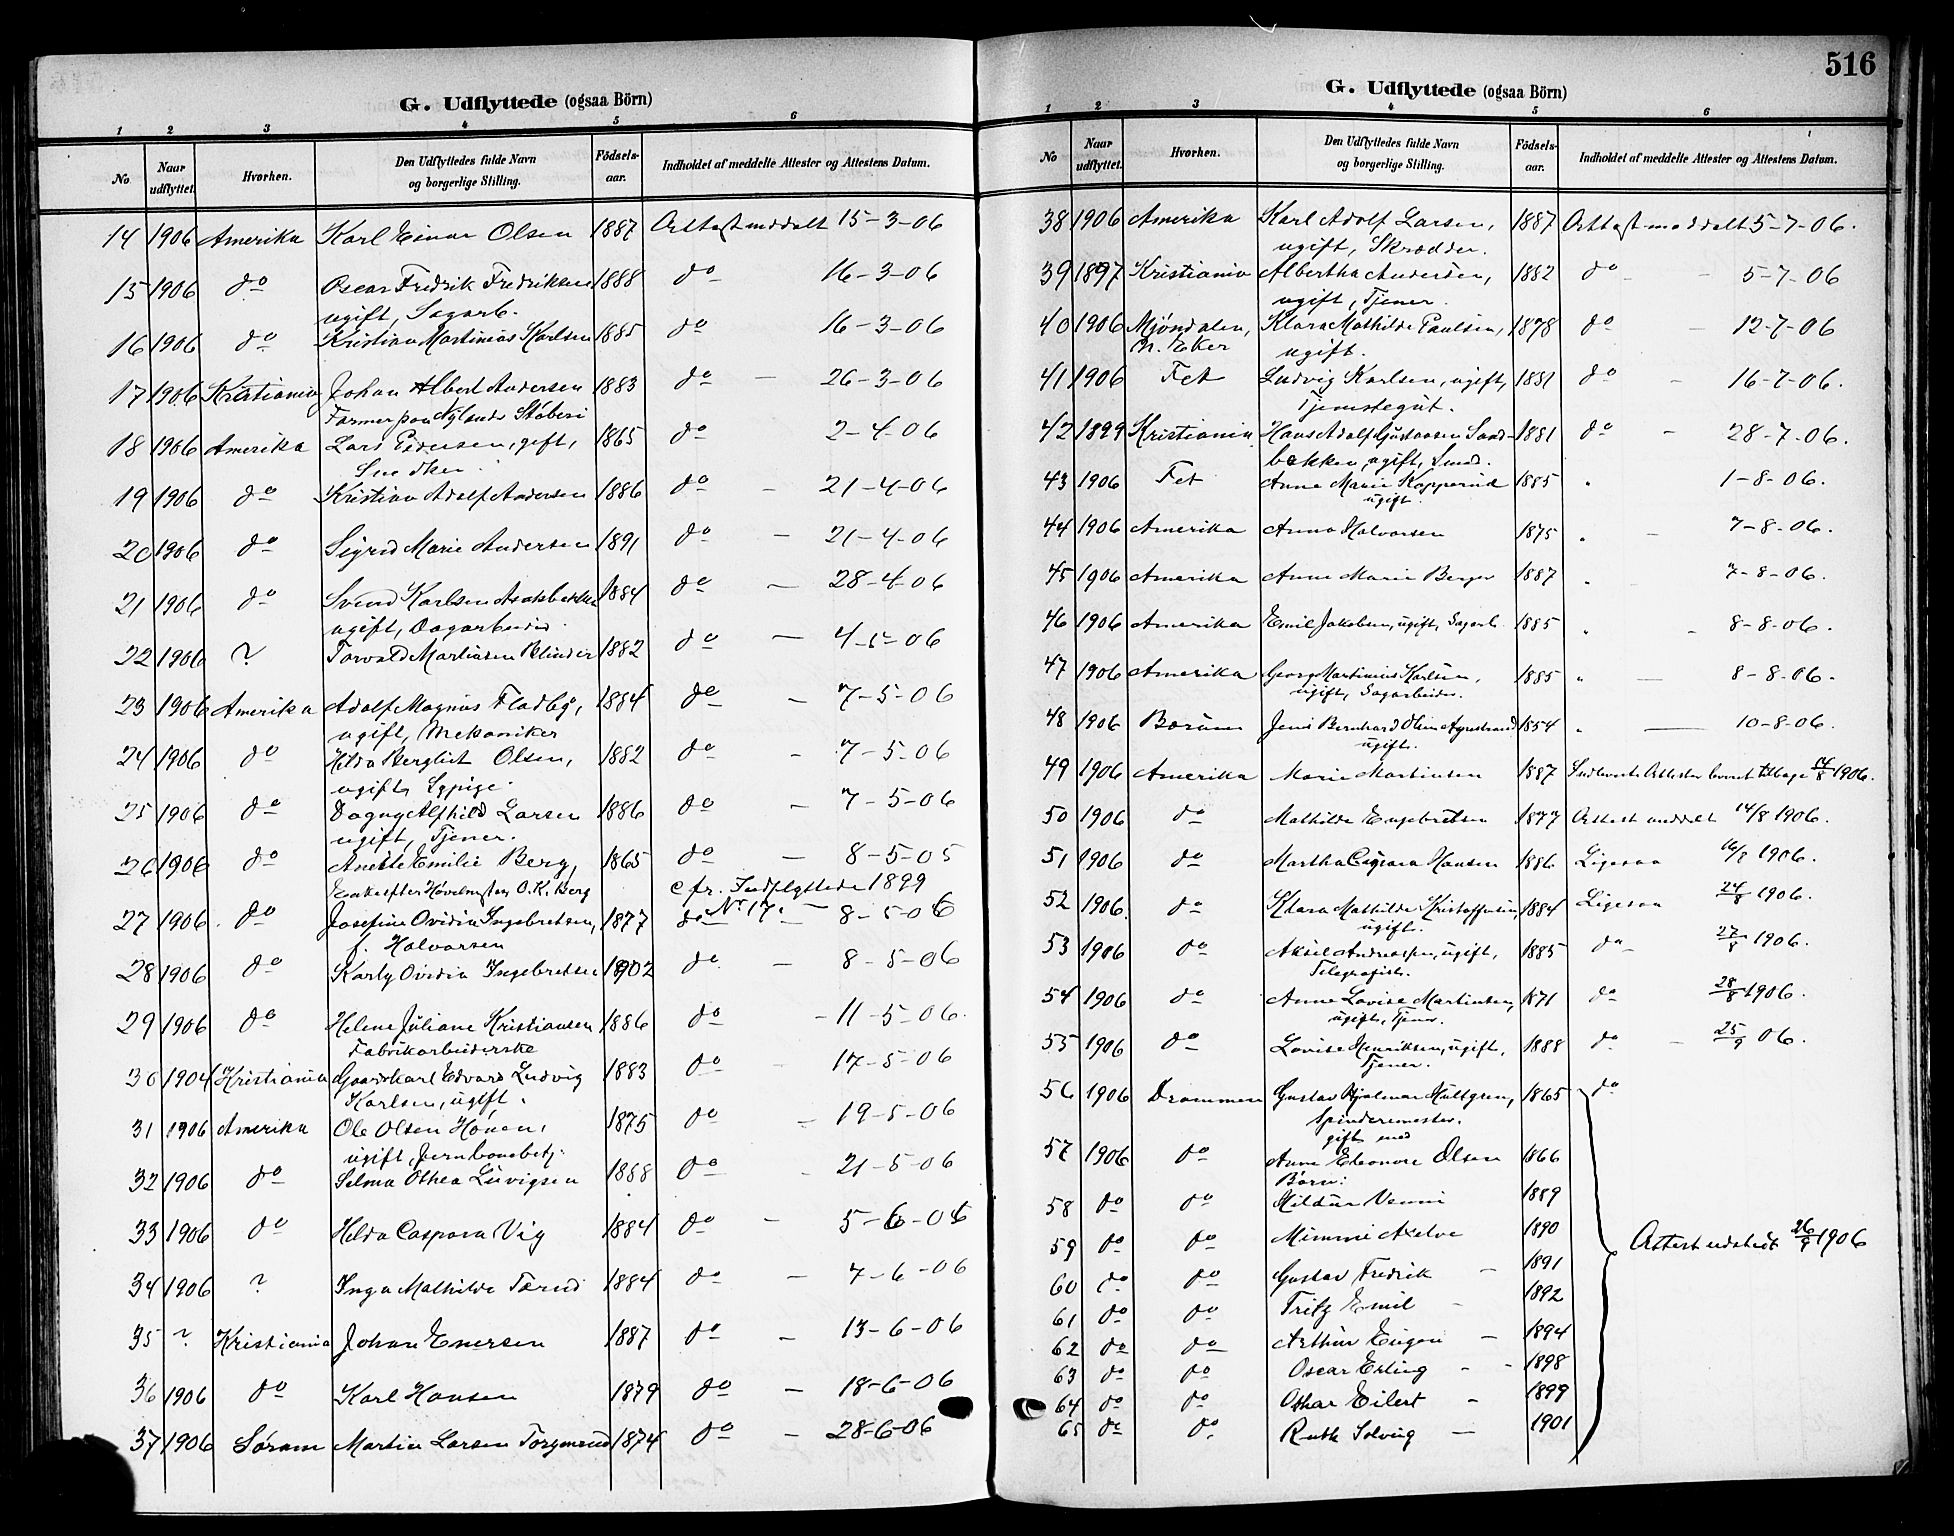 G. Udflyttede (ogsaa Börn)
1 2 3 4 5 6
No Naar udflyttet. Hvorhen. Den Udflyttedes fulde Navn og borgerlige Stilling. Fødsels-aar. Indholdet af meddelte Attester og Attestens Datum.
14 1906 Amerika Karl Einar Olsen 1887 Attest meddelt 15-3-06
15 1906 do Oscar Fredrik Fredriksen 1888 do 16-3-06
ugift, Sagarb.
16 1906 do Kristian Martinius Karlsen 1885 do 16-3-06
17 1906 Kristiania Johan Albert Andersen 1883 do - 26-3-06
Former paa Nylands Støberi
18 1906 Amerika Lars Pedersen, gift, 1865 do 2-4-06
Snedker
19 1906 do Kristian Adolf Andersen 1886 do - 21-4-06
20 1906 do Sigrid Marie Andersen 1891 do - 21-4-06
21 1906 do Svend Karlsen 1884 do - 28-4-06
ugift, Dagarbeider
22 1906 ? Torvald Martinsen 1882 do - 4-5-06
23 1906 Amerika Adolf Magnus Fladby, 1884 do - 7-5-06
ugift, Mekaniker
24 1906 do Hilda Berglist Olsen, 1882 do - 7-5-06
ugift, Sypige
25 1906 do Dagny Alfhild Larsen 1886 do - 7-5-06
ugift, Tjener.
26 1906 do Anette Emilie Berg, 1865 do - 8-5-05
Enke efter Høvelmester O. K. Berg cfr. Indflyttede 1899
No 17.
27 1906 do Josefine Ovidia Ingebretsen, 1877 do - 8-5-06
f. Halvorsen
28 1906 do Karly Ovidia Ingebretsen 1902 do - 8-5-06
29 1906 do Helene Juliane Kristiansen 1886 do - 11-5-06.
Fabrikarbeiderske
30 1904 Kristiania Gaardskarl Edvard Ludvig 1883 do - 17-5-06
Karlsen, ugift.
31 1906 Amerika Ole Olsen Hønen, 1875 do - 19-5-06
ugift, Jernbanebetj.
32 1906 do Selma Othea Luvigsen 1888 do - 21-5-06
33 1906 do Hilda Caspara Vig 1884 do - 5-6-06
34 1906 ? Inga Mathilde Tærud 1884 do - 7-6-06
35 ? Kristiania Johan Enersen 1887 do - 13-6-06
36 1906 do Karl Hansen 1879 do - 18-6-06
37 1906 Sørum Martin Larsen 1874 do - 28-6-06
516
G. Udflyttede (ogsaa Börn)
1 2 3 4 5 6
No Naar udflyttet. Hvorhen. Den Udflyttedes fulde Navn og borgerlige Stilling. Fødsels-aar. Indholdet af meddelte Attester og Attestens Datum.
38 1906 Amerika Karl Adolf Larsen, 1887 Attest meddelt 5-7-06.
ugift, Skrædder.
39 1897 Kristiania Albertha Andersen, 1882 do - 5-7-06
ugift, Tjener.
40 1906 Mjøndalen, Klara Mathilde Paulsen, 1878 do - 12-7-06
N. Eker ugift.
41 1906 Fet Ludvig Karlsen, ugift, 1881 do - 16-7-06.
Tjenestegut.
42 1899 Kristiania Hans Adolf Gustavsen Sand- 1881 do - 28-7-06.
bækken, ugift, Smed.
43 1906 Fet Anne Marie Kopperud 1885 " 1-8-06.
ugift
44 1906 Amerika Anna Halvorsen 1875 " - 7-8-06.
45 1906 Amerika Anne Marie Berger 1887 " 7-8-06.
46 1906 Amerika Emil Jakobsen, ugift, Sagarb. 1885 " - 8-8-06.
47 1906 Amerika Georg Martinius Karlsen, 1885 " - 8-8-06.
ugift, Sagarbeider.
48 1906 Bærum Jens Bernhard Olsen 1854 " - 10-8-06.
ugift.
49 1906 Amerika Marie Martinsen 1887 Indleverte Attester leveret tilbage 14/8 1906.
50 1906 do Mathilde Engebretsen 1877 Attest meddelt 14/8 1906.
51 1906 do Martha Hansen 1886 Ligesaa 16/8 1906.
52 1906. do Klara Mathilde Kristoffersen 1884 Ligesaa 24/8 1906.
ugift.
53 1906 do Aksel Andreassen, ugift, 1885 do 27/8 1906.
Telegrafist.
54 1906 do Anne Lovise Martinsen, 1871 do 28/8 1906.
ugift, Tjener.
55 1906 do Lovise Henriksen, ugift, 1888 do - 25/9 06.
Tjener.
56 1906 Drammen Gustav Hjalmar Hultgren, 1865 do
Spinderimester.
gift med
57 1906 do Anne Eleonore Olsen 1866
Børn:
58 do do Hildur Venni 1889
59 do do Mimmi Axelve 1890 Attest udstedt 26/9 1906
60 do do Gustav Fredrik - 1891
61 do do Fritz Emil - 1892
62 do do Arthur Eugen - 1894
63 do do Oscar Erling - 1898
64 do do Othar Eilert - 1899
65 do do. Ruth Solveig - 1901